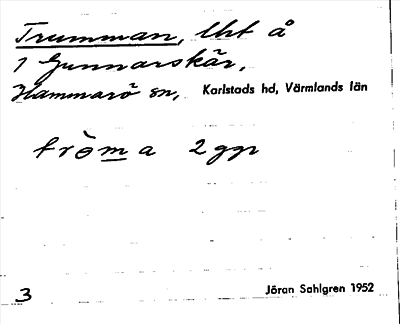 Trumman, lht å
1 Gunnarskär,
Hammarö sn, Karlstads hd, Värmlands län
tròma 2 ggr
3 Jöran Sahlgren 1952